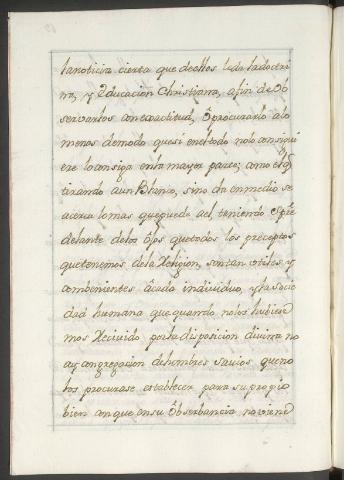 lanoticia cierta que dellos leda ladoctri
na, y Educacion Christiana, afin de Ob
servarlos con exactitud, ô procurarlo alo
menos demodo quesi enel todo nolo consigui
ere lo consiga enla mayor parte; como el q
tirando aun Blanco, sino da enmedio se
acerca lomas quepuede ael teniendo siẽpre
delante delos Ojos quetodos los preceptos
quetenemos dela Religion, sontan utiles y
combenientes âcada individuo, y la Socie
dad humana que quando nolos hubiese
mos Recivido porla disposicion divina no
ay congregacion dehombres Savios queno
los procurase establecer para su propio
bien con que ensu Observancia no viene